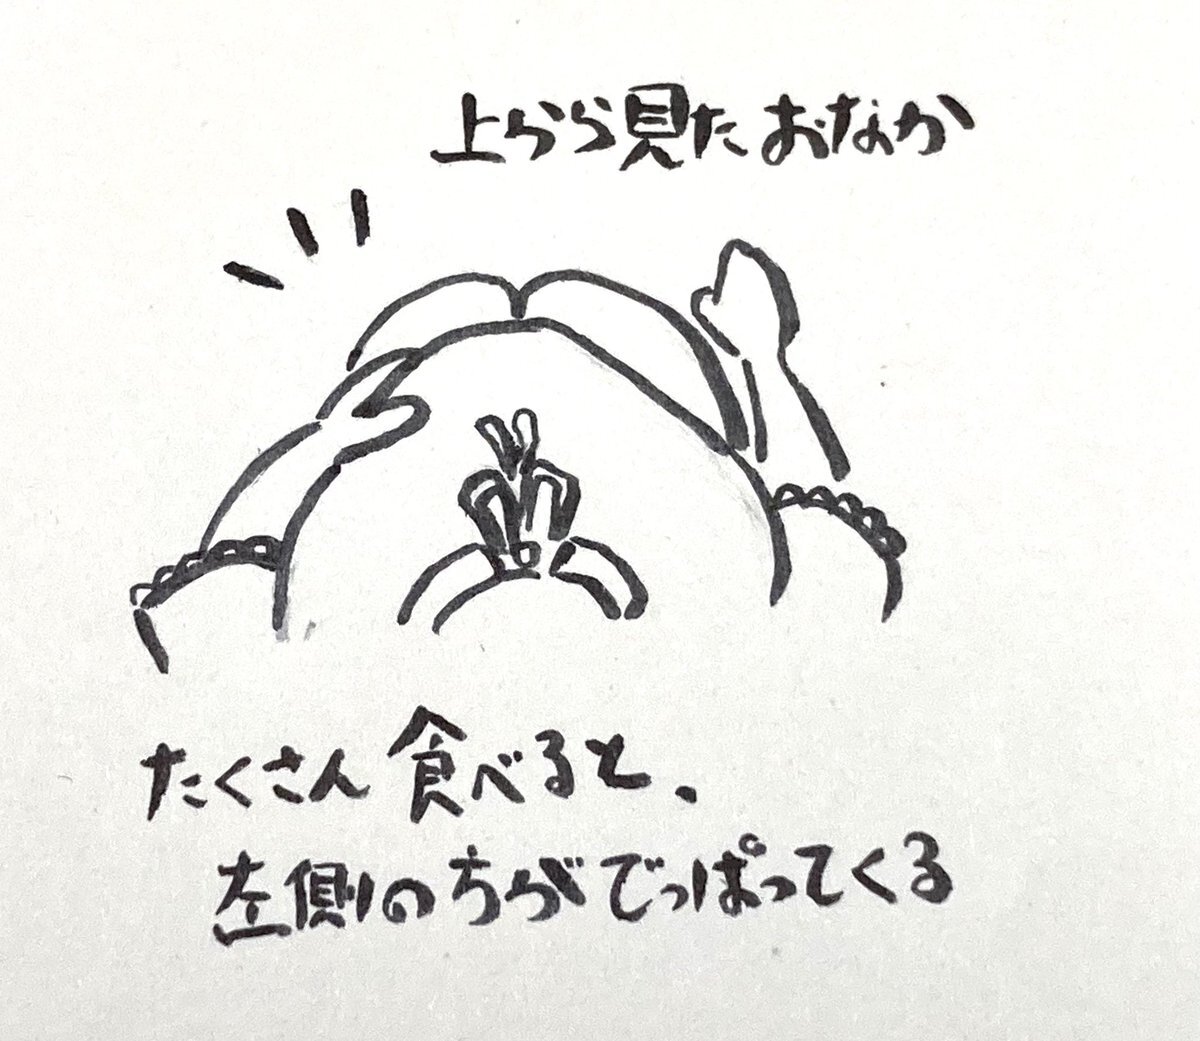 上から見たおなか
たくさん食べると、
左側の方がでっぱってくる